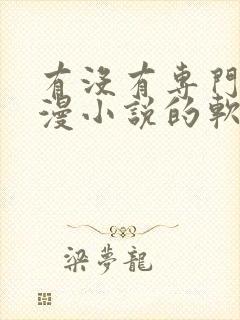 有沒有專門
漫小說的軟
梁夢龍